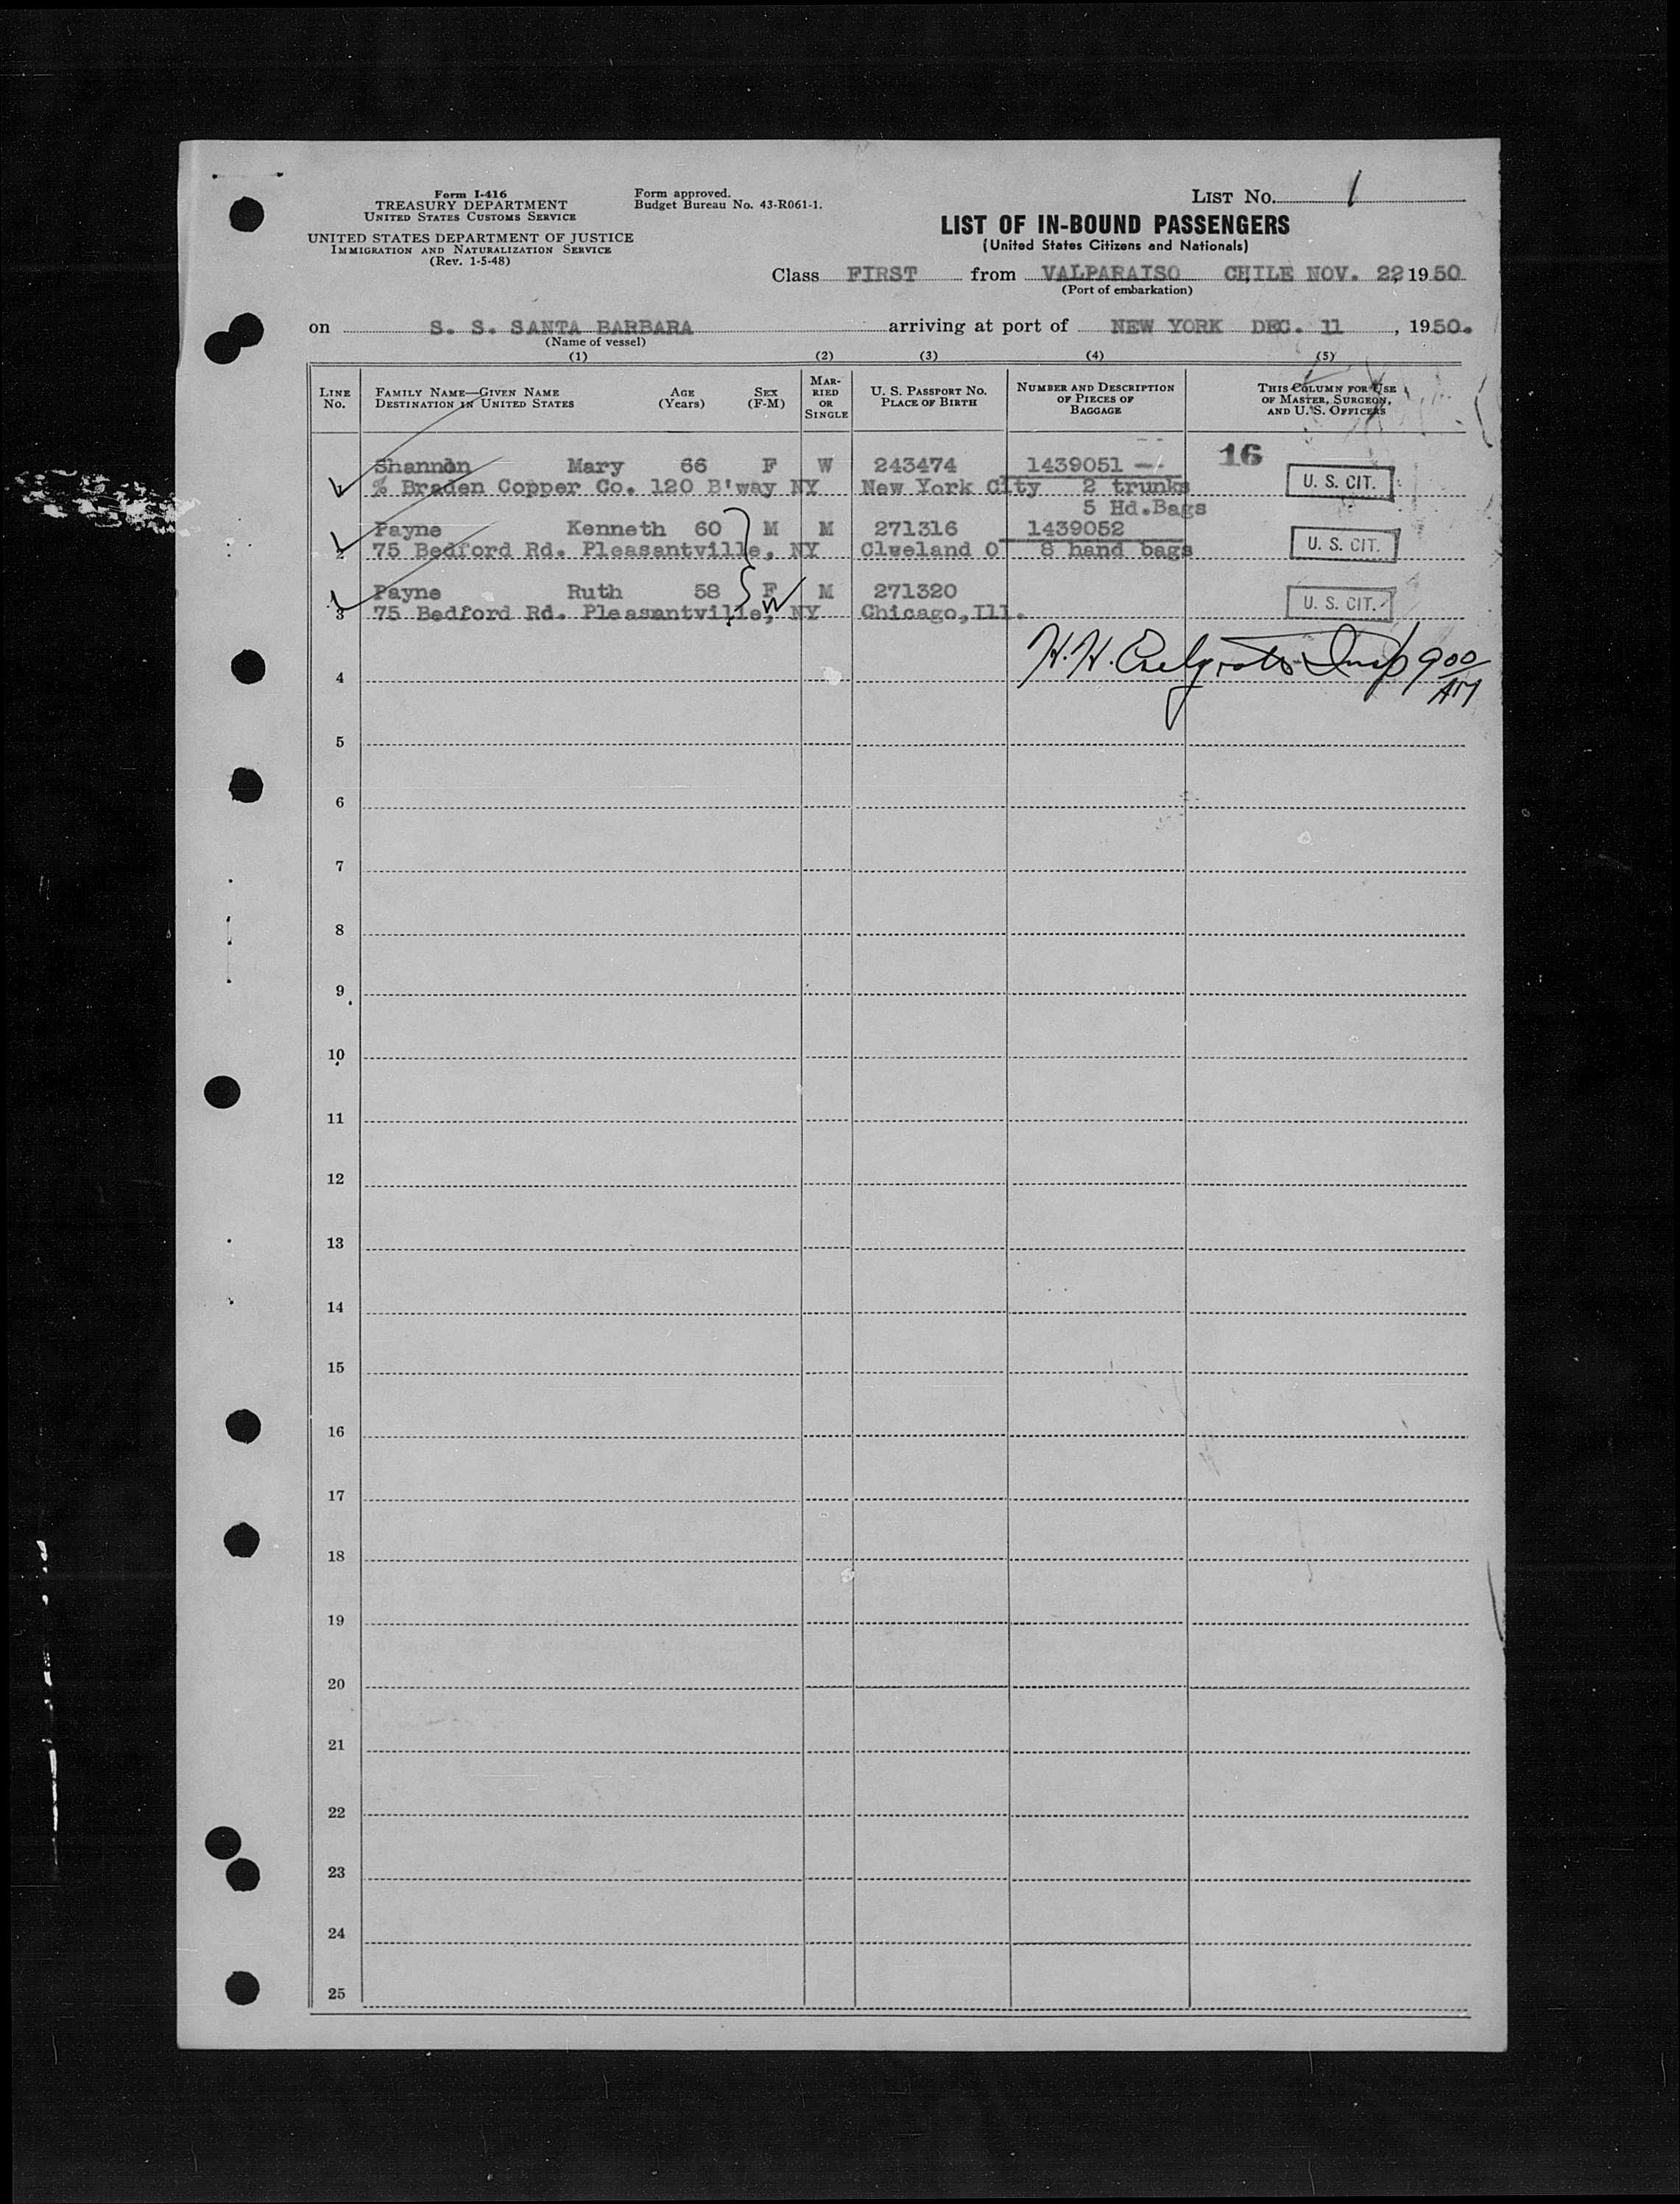 Form I-416
TREASURY DEPARTMENT
UNITED STATES CUSTOMS SERVICE
UNITED STATES DEPARTMENT OF JUSTICE
IMMIGRATION AND NATURALIZATION SERVICE
(Rev. 1-5-48)
Form approved.
Budget Bureau No. 43-R061-1.
LIST NO. 1
LIST OF IN-BOUND PASSENGERS
(United States Citizens and Nationals)
Class FIRST from VALPARAISO CHILE NOV. 22, 1950
(Port of embarkation)
on S. S. SANTA BARBARA arriving at port of NEW YORK DEC. 11, 1950.
(Name of vessel)
(1) (2) (3) (4) (5)
LINE NO.
FAMILY NAME—GIVEN NAME
DESTINATION IN UNITED STATES
AGE
(Years)
SEX
(F-M)
MAR-
RIED
OR
SINGLE
U. S. PASSPORT NO.
PLACE OF BIRTH
NUMBER AND DESCRIPTION
OF PIECES OF
BAGGAGE
THIS COLUMN FOR USE
OF MASTER, SURGEON,
AND U. S. OFFICERS
Shannon Mary 66 F W 243474 1439051 -- 16
1 % Braden Copper Co. 120 B'way NY New York City 2 trunks U. S. CIT.
5 Hd.Bags
Payne Kenneth 60 M M 271316 1439052
2 75 Bedford Rd. Pleasantville, NY Clweland O 8 hand bags U. S. CIT.
Payne Ruth 58 F W M 271320
3 75 Bedford Rd. Pleasantville, NY Chicago,Ill. U. S. CIT.
H. H. Insp 900
AM
4
5
6
7
8
9
10
11
12
13
14
15
16
17
18
19
20
21
22
23
24
25